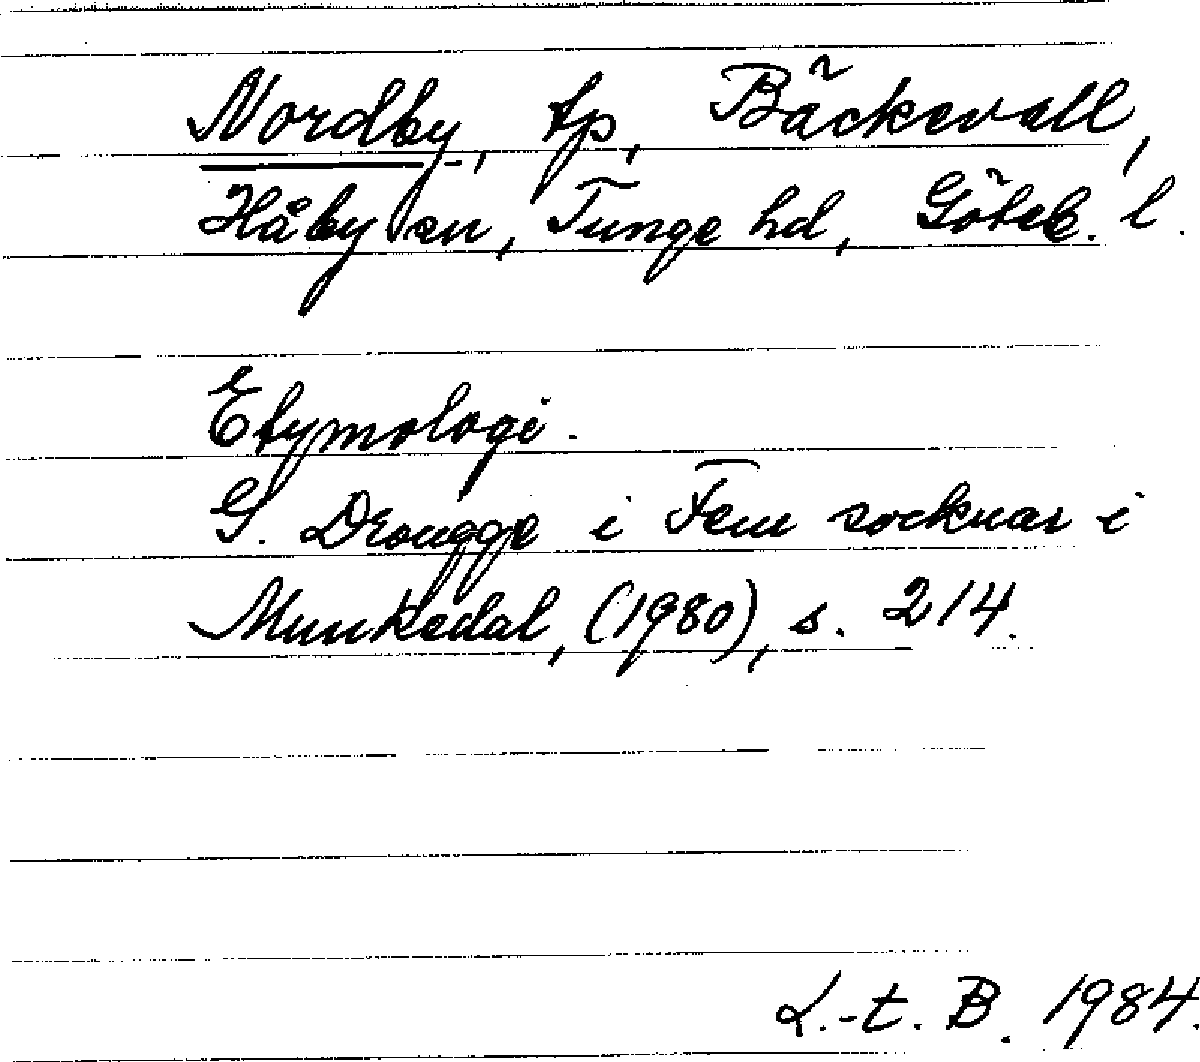 Nordby, tp, Bäckevall,
Håby sn, Tunge hd, Göteb. l.
Etymologi.
G. Drougge i Fem socknar i
Munkedal, (1980), s. 214.
L.-t. B. 1984.